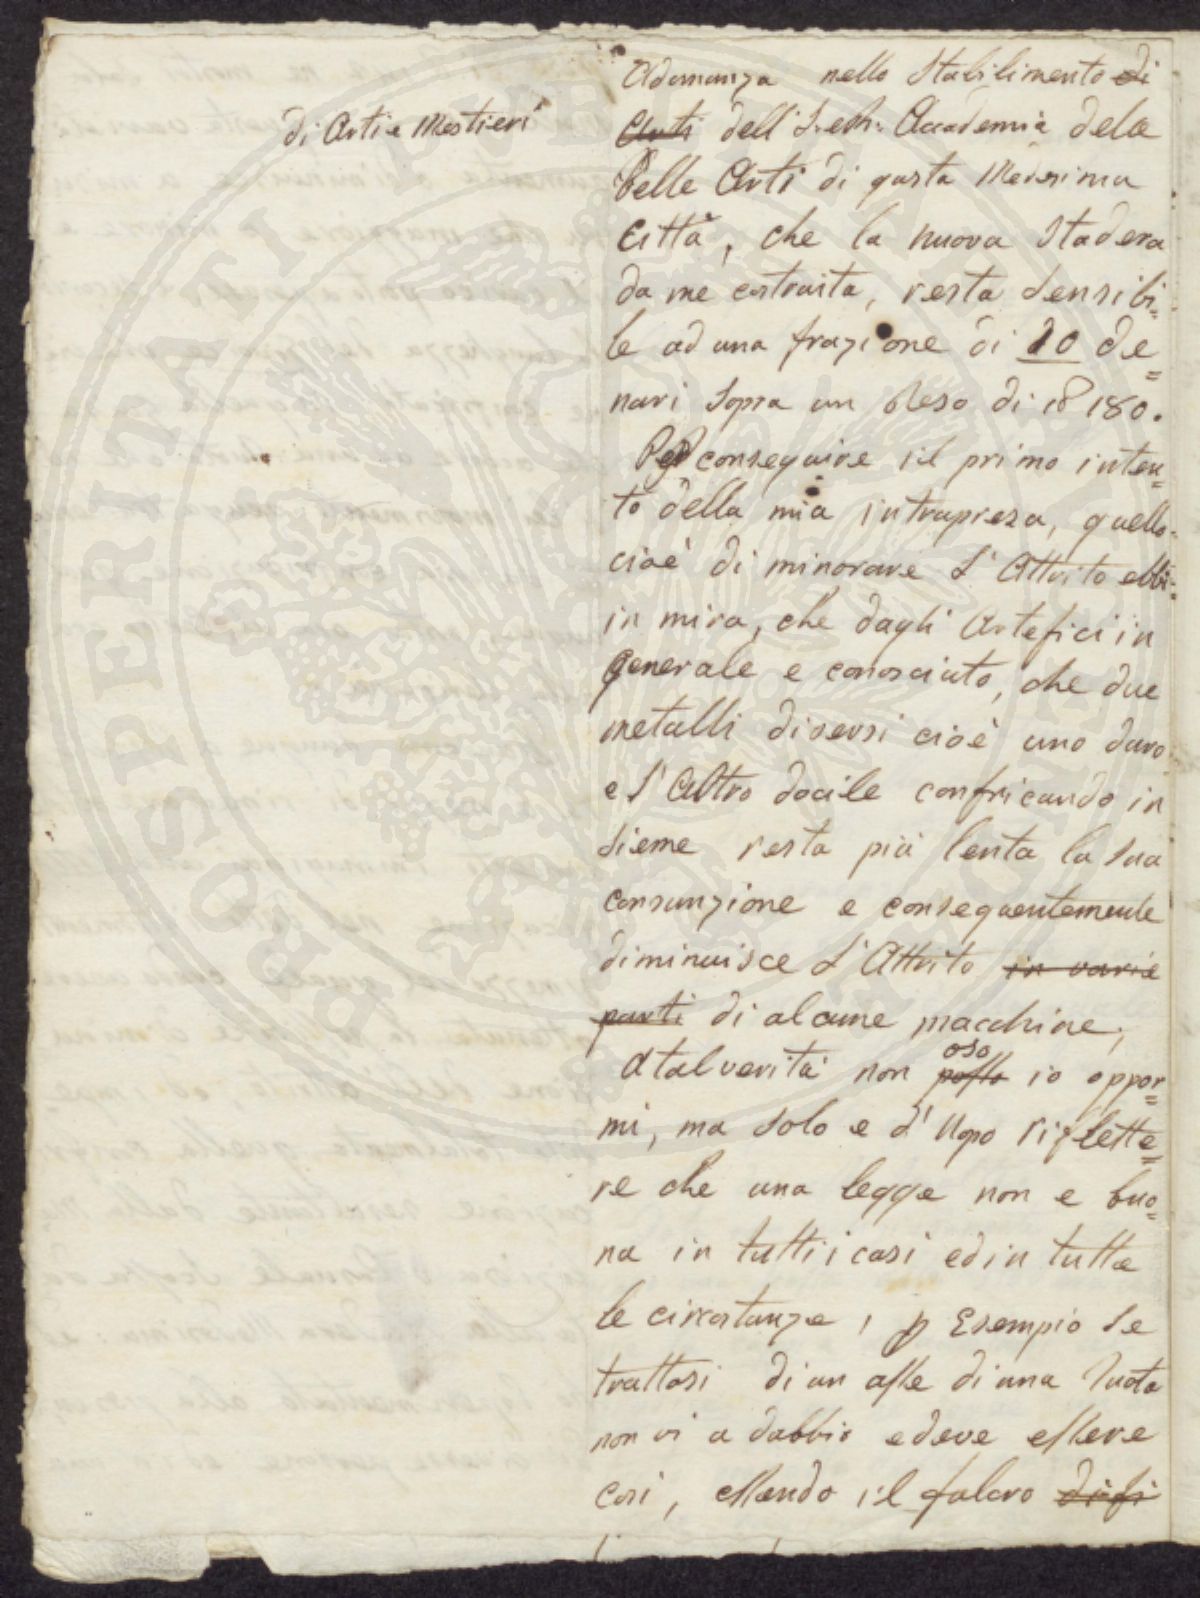 di Arti e Mestieri
Adunanza nello Stabilimento di
Arti dell' I. e R. Accademia dele
Belle Arti di questa Medesima
Città, che la nuova Stadera
da me costruita, resta Sensibi=
le ad una frazione di 20 de=
nari Sopra un Peso di 180.
Per conseguire il primo inten=
to della mia intrapresa, quello
cioè di minorare l'Attrito ebbi
in mira, che dagli Artefici in
generale e conosciuto, che due
metalli diversi cioè uno duro
e l'Altro docile confricando in
sieme resta più lenta la Sua
consunzione e conseguentemente
diminuisce l'Attrito in varie
parti di alcune macchine,
oso
Atal verità non posso io oppor=
mi, ma solo e d'Uopo riflette=
re che una legge non e buo=
na in tutti i casi ed in tutte
le circostanze, p Esempio Se
trattasi di un asse di una Ruota
non vi a dubbio e deve essere
così, essendo il fulcro
PROSPERITATI PUBLICAE